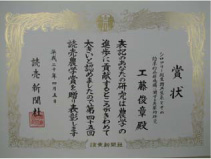 賞状
工藤俊章殿
表記のあなたの研究は農学の
進歩に貢献するところがきわめて
大きいと認めましたので第四十五回
読売農学賞を贈り表彰します
平成二十年四月五日
読売新聞社
読売新聞社